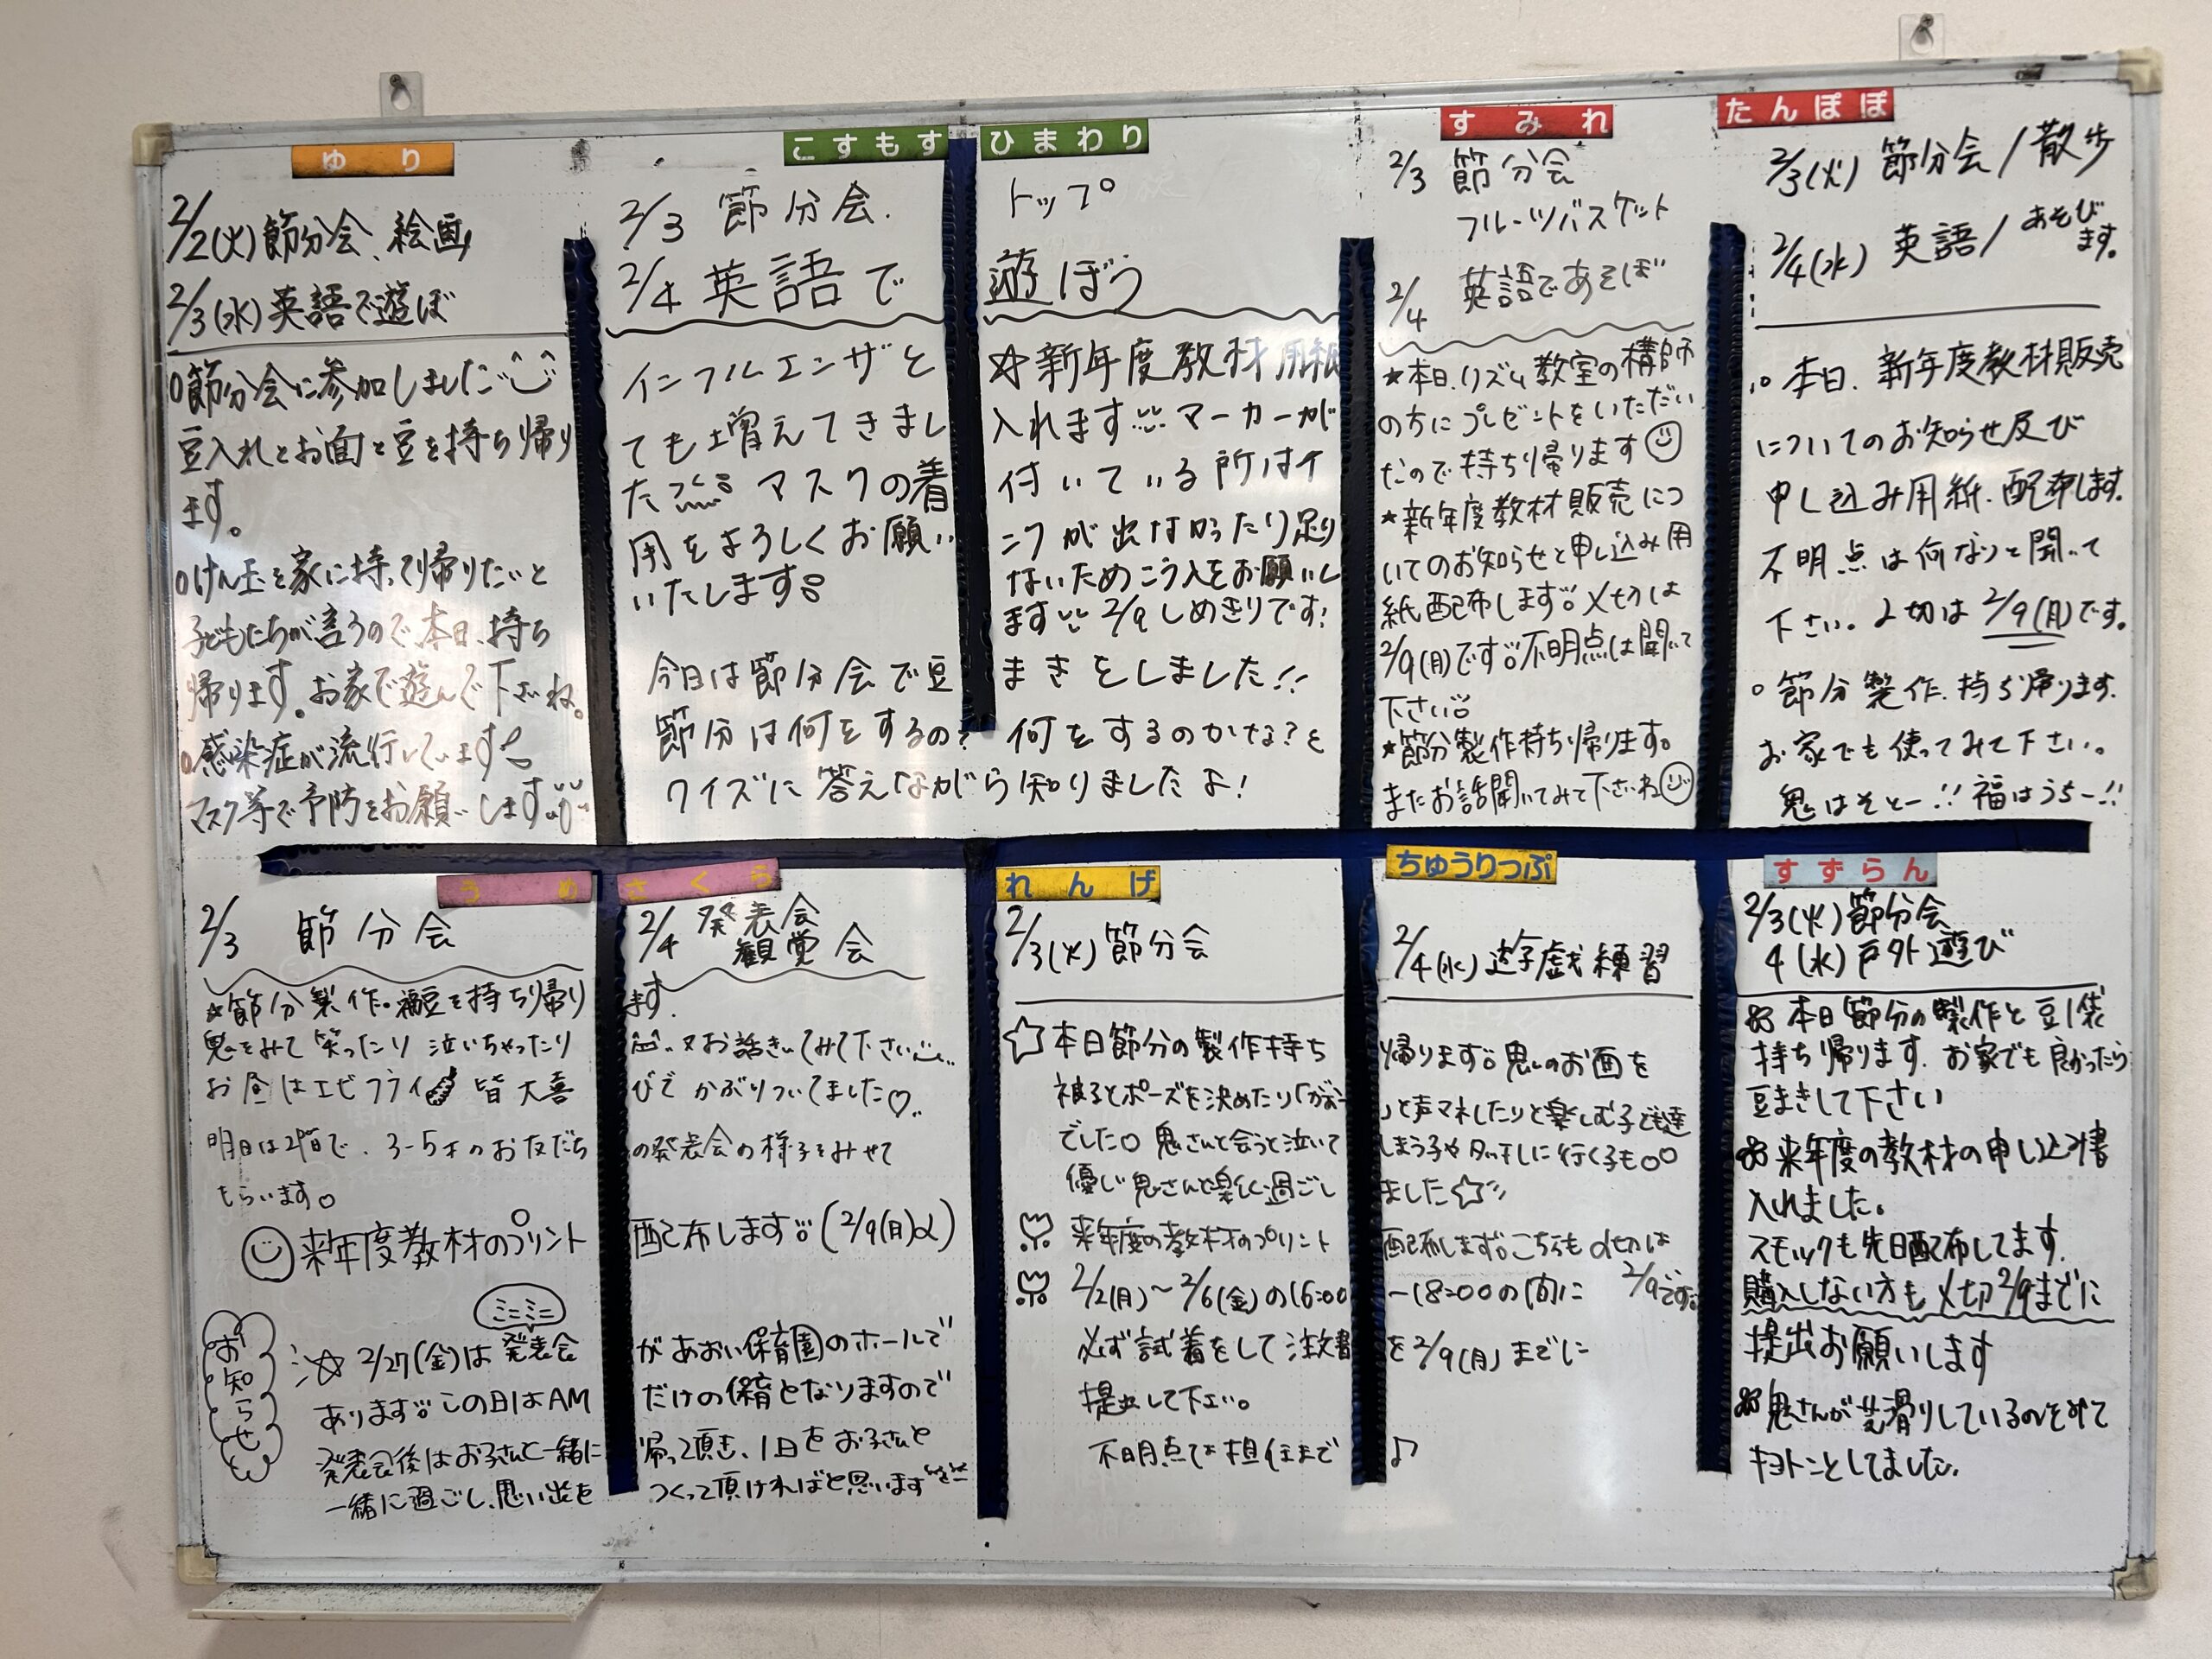 ゆり
2/2(火)節分会、絵画
2/3(水)英語で遊ぼ
○節分会に参加しました
豆入れとお面と豆を持ち帰り
ます。
○けん玉を家に持って帰りたいと
子どもたちが言うので、本日、持ち
帰ります。お家で遊んで下さいね。
○感染症が流行しています
マスク等で予防をお願いします
こすもす ひまわり
2/3 節分会. トップ
2/4 英語で 遊ぼう
インフルエンザと
ても増えてきまし
た マスクの着
用をよろしくお願い
いたします。
☆新年度教材用紙
入れます マーカーが
付いている所はイ
ンクが出なかったり足り
ないためこう入をお願いし
ます 2/9しめきりです!
今日は節分会で豆まきをしました!!
節分は何をするの?何をするのかな?を
クイズに答えながら知りましたよ!
すみれ
2/3 節分会
フルーツバスケット
2/4 英語であそぼ
★本日、リズム教室の構師
の方にプレゼントをいただい
たので持ち帰ります
★新年度教材販売につ
いてのお知らせと申し込み用
紙配布します。〆切は
2/9(月)です。不明点は聞いて
下さい。
★節分製作持ち帰ります。
またお話聞いてみて下さいね
たんぽぽ
2/3(火) 節分会/散歩
2/4(水) 英語/あそび
ます。
○本日、新年度教材販売
についてのお知らせ及び
申し込み用紙、配布します。
不明点は何なりと聞いて
下さい。〆切は2/9(月)です。
○節分製作、持ち帰ります.
お家でも使ってみて下さい。
鬼はそとー!! 福はうちー!!
うめ さくら
2/3 節分会 2/4 発表会
観覚会
★節分製作。福豆を持ち帰ります.
鬼をみて笑ったり 泣いちゃったり 又お話きいてみて下さい
お昼はエビフライ 皆大喜びで かぶりついてました♡
明日は2階で、3-5才のお友だちの発表会の様子をみせて
もらいます。
来年度教材のプリント配布します。(2/9(月)〆)
お知らせ
ミニミニ
☆2/27(金)は発表会があおい保育園のホールで
あります。この日はAMだけの保育となりますので
発表会後はお子さんと一緒に帰って頂き、1日をお子さんと
一緒に過ごし、思い出をつくって頂ければと思います
れんげ ちゅうりっぷ
2/3(火)節分会 2/4(水)遊戯練習
☆本日節分の製作持ち帰ります。鬼のお面を
被るとポーズを決めたり「がおー」と声マネしたりと楽しむ子ども達
でした○ 鬼さんと会うと泣いてしまう子やタッチしに行く子も○○
優しい鬼さんと楽しく過ごしました☆
来年度の教材のプリント配布します。こちらも〆切は
2/9です。
2/2(月)〜2/6(金)の16:00-18:00の間に
必ず試着をして注文書を2/9(月)までに
提出して下さい。
不明点は担任まで♪
すずらん
2/3(火)節分会
4(水)戸外遊び
本日節分の製作と豆1袋
持ち帰ります. お家でも良かったら
豆まきして下さい
来年度の教材の申し込み書
入れました。
スモックも先日配布してます.
購入しない方も〆切2/9までに
提出お願いします
鬼さんが滑りしているのをみて
キョトンとしてました。